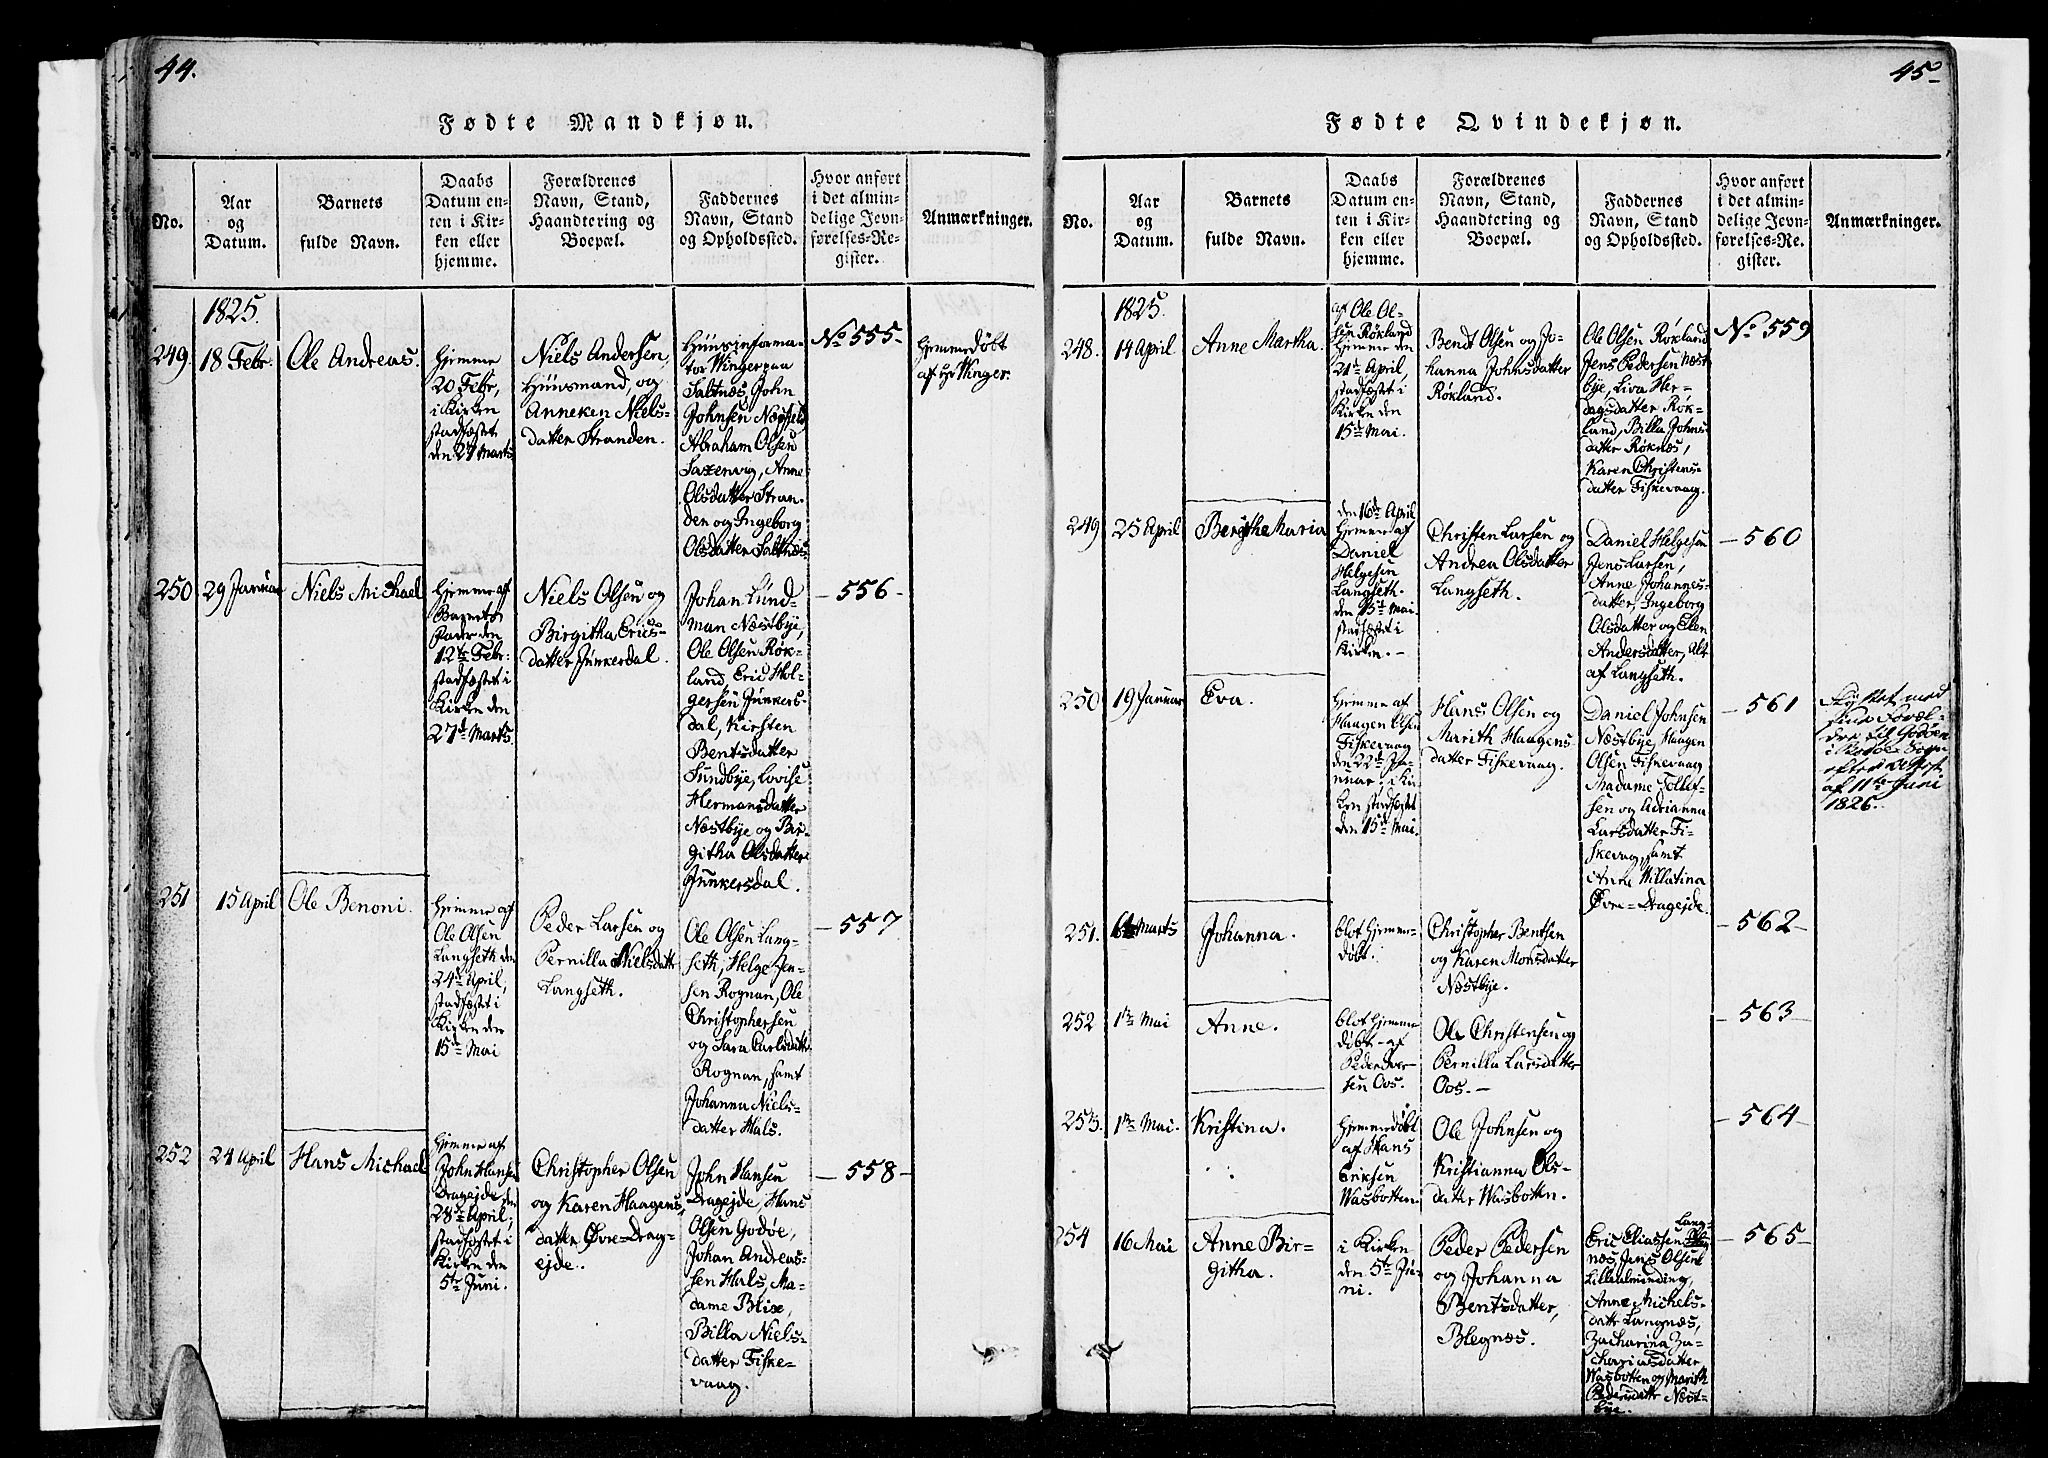 44.
Fødte Mandkjøn.
No.
Aar
og
Datum.
Barnets
fulde Navn.
Daabs
Datum en-
ten i Kir-
ken eller
hjemme.
Forældrenes
Navn, Stand,
Haandtering og
Boepæl.
Faddernes
Navn, Stand
og Opholdssted.
Hvor anført
i det almin-
delige Jevn-
førelses-Re-
gister.
Anmærkninger.
1825.
249
18 Febr.
Ole Andreas.
hjemme
20 Febr,
i Kirken
stadfæstet
den 27 Marts
Niels Andersen,
Huusmand, og
Anneken Niels-
datter Stranden.
Huusinforma-
tor Winger paa
Saltnæs, John
Johnsen
Abraham Olsen
Saxenvig, Anne
Olsdatter Stran-
den og Ingeborg
Olsdatter Saltnæs
No 555-
Hjemmedøbt
af Hr Winger.
250
29 Januar
Niels Michael
hjemme af
Barnets
Fader den
12te Febr.
stadfæstet i
Kirken den
27d Marts.
Niels Olsen og
Birgitha Erics-
datter Junkerdal.
Johan Lund-
man Næstbye,
Ole Olsen Røk-
land, Eric Hol-
gersen Junkers-
dal, Kirsten
Bentsdatter
Sundbye, Lovise
Hermansdatter
Næstbye og Bir-
githa Olsdatter
Junkersdal.
- 556 -
251
15 April
Ole Benoni.
hjemme af
Ole Olsen
Langseth den
24d April,
stadfæstet i
Kirken den
15d Mai
Peder Larsen og
Pernilla Nielsdatt
Langseth.
Ole Olsen Lang-
seth, Helge Jen-
sen Rognan, Ole
Christophersen
og Sara Carlsdatt
Rognan, samt
Johanna Niels-
datter Hals.
- 557
252
24 April
Hans Michael
hjemme af
John Hansen
Dragejde den
28de April,
stadfæstet i
Kirken den
5te Juni.
Christopher Olsen
og Karen Haagens-
datter Øvre-Drag-
ejde.
John Hansen
Dragejde, Hans
Olsen Godøe,
Johan Andreas-
sen Hals, Ma-
dame Blix,
Billa Niels-
datter Fiske-
vaag.
- 558 -
45-
Fødte Qvindekjøn.
No.
Aar
og
Datum.
Barnets
fulde Navn.
Daabs
Datum en-
ten i Kir-
ken eller
hjemme.
Forældrenes
Navn, Stand,
Haandtering og
Boepæl.
Faddernes
Navn, Stand
og Opholdssted.
Hvor anført
i det almin-
delige Jevn-
førelses-Re-
gister.
Anmærkninger.
1825.
248.
14 April
Anne Martha.
af Ole Ol-
sen Røkland
hjemme den
21de April,
stadfæstet i
Kirken den
15de Mai.
Bendt Olsen og Jo-
hanna Johnsdatter
Røkland.
Ole Olsen Røkland
Jens Pedersen Næst
bye, Liva Her-
dagsdatter Røk-
land, Billa Johns
datter Røknæs,
Karen Christens-
datter Fiskevaag.
No 559
249
25 April
Berythe Maria
den 16de April
hjemme af
Daniel
Helgesen
Langseth.
den 15d Mai
stadfæstet i
Kirken. -
Christen Larsen og
Andrea Olsdatter
Langseth.
Daniel Helgesen
Jens Larsen,
Anne Johannes-
datter, Ingeborg
Olsdatter og Elen
Andersdatter, Alt
af Langseth.
- 560
250
19 Januar
Eva.
hjemme af
Haagen Olsen
Fiskevaag
den 22de Ja-
nuar, i Kir-
ken stadfæstet
den 15d Mai.
Hans Olsen og
Marith Haagens-
datter Fiskevaag.
Daniel Johnsen
Næstbye, Haagen
Olsen Fiskevaag
Madame Tollef-
sen og Adrianna
Larsdatter Fi-
skevag, samt
Anne Willatina
Øvre-Dragejde.
- 561
Flyttet med
sine Foræl-
dre til Godøen
i Bodøe Sogn
efter Attest
af 11te Juni
1826.
251.
6te Marts
Johanna.
blot hjemme-
døbt.
Christopher Bentsen
og Karen Monsdatter
Næstbye.
- 562 -
252
1te Mai
Anne.
blot hjemme
døbt - af
Peder Iver-
sen Oos.
Ole Christensen og
Pernilla Larsdatter
Oos. -
- 563
253.
1te Mai.
Kristina.
Hjemmedøbt
af Hans
Eriksen
Wasbotten.
Ole Johnsen og
Kristianna Ols-
datter Wasbotten.
- 564
254
16 Mai
Anne Bir-
githa.
i Kirken
den 5te Ju-
ni.
Peder Pedersen
og Johanna
Bentsdatter,
Blegnæs.
Eric Eliassen Lang-
næs, Jens Olsen
Lillealminding,
Anne Mickels-
datt Langnæs,
Zacharina Za-
chariasdatter
Wasbotten og Marith
Pedersdattr Næst-
bye.
- 565 -